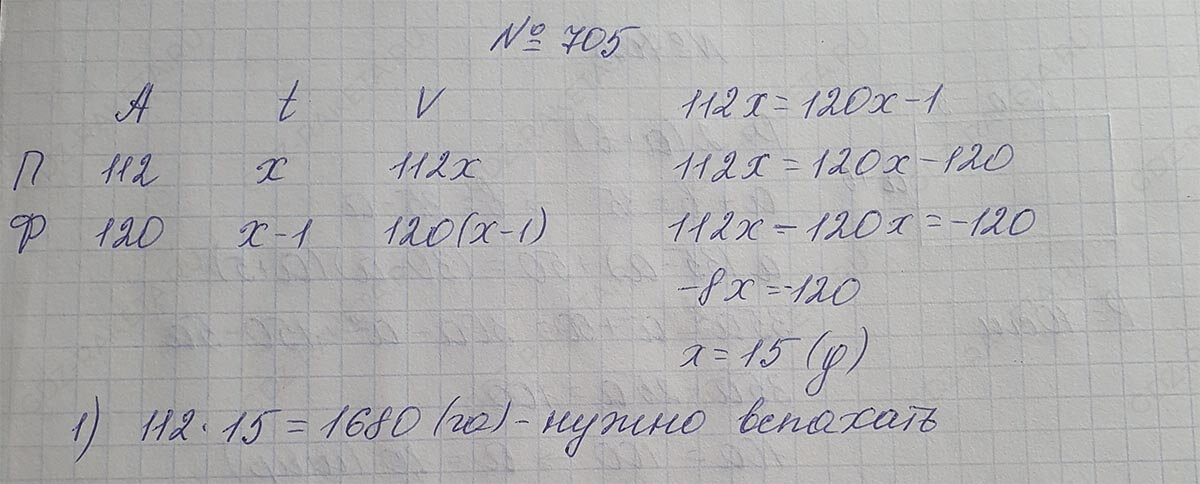 № 705
A t V
П 112 x 112x
Ф 120 x-1 120(x-1)
112x = 120x-1
112x = 120x-120
112x-120x=-120
-8x=-120
x=15 (д)
1) 112·15=1680 (га)-нужно вспахать